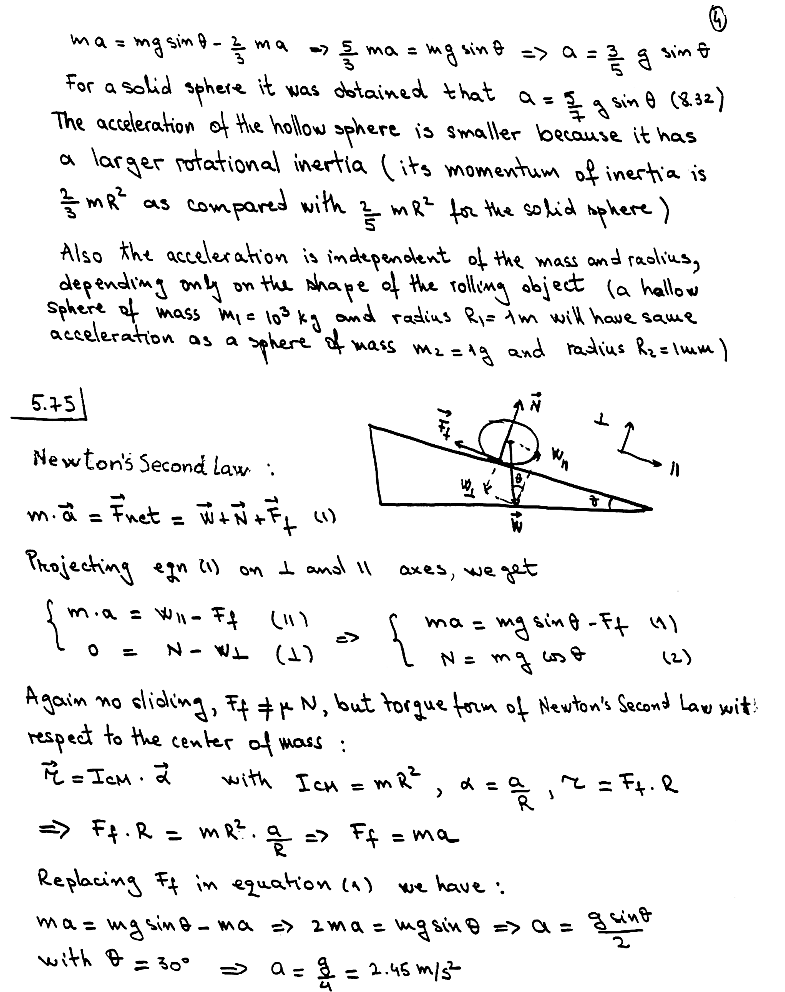 4
ma = mg sin θ - 2/3 ma => 5/3 ma = mg sin θ => a = 3/5 g sin θ
For a solid sphere it was obtained that a = 5/7 g sin θ (8.32)
The acceleration of the hollow sphere is smaller because it has
a larger rotational inertia (its momentum of inertia is
2/3 mR² as compared with 2/5 mR² for the solid sphere)
Also the acceleration is independent of the mass and radius,
depending only on the shape of the rolling object (a hollow
sphere of mass m₁ = 10³ kg and radius R₁ = 1m will have same
acceleration as a sphere of mass m₂ = 1g and radius R₂ = 1mm)
5.75
N⃗
F⃗f
⊥
W∥
∥
W⊥
θ
θ
W⃗
Newton's Second Law :
m·a⃗ = F⃗net = W⃗ + N⃗ + F⃗f (1)
Projecting eqn (1) on ⊥ and ∥ axes, we get
{ m·a = W∥ - Ff (∥) => { ma = mg sin θ - Ff (1)
0 = N - W⊥ (⊥) N = mg cos θ (2)
Again no sliding, Ff ≠ μN, but torque form of Newton's Second Law wit
respect to the center of mass :
τ⃗ = ICM · α⃗ with ICM = mR², α = a/R, τ = Ff · R
=> Ff · R = mR² · a/R => Ff = ma
Replacing Ff in equation (1) we have :
ma = mg sin θ - ma => 2ma = mg sin θ => a = g sin θ/2
with θ = 30° => a = g/4 = 2.45 m/s²